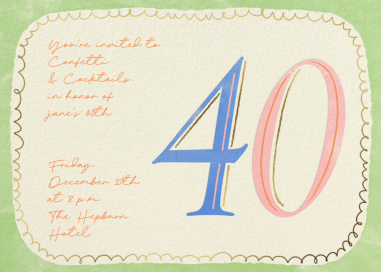 You're invited to
Confetti
& Cocktails
in honor of
jane's 40th
40
Friday,
December 27th
at 8 pm
The Hepburn
Hotel